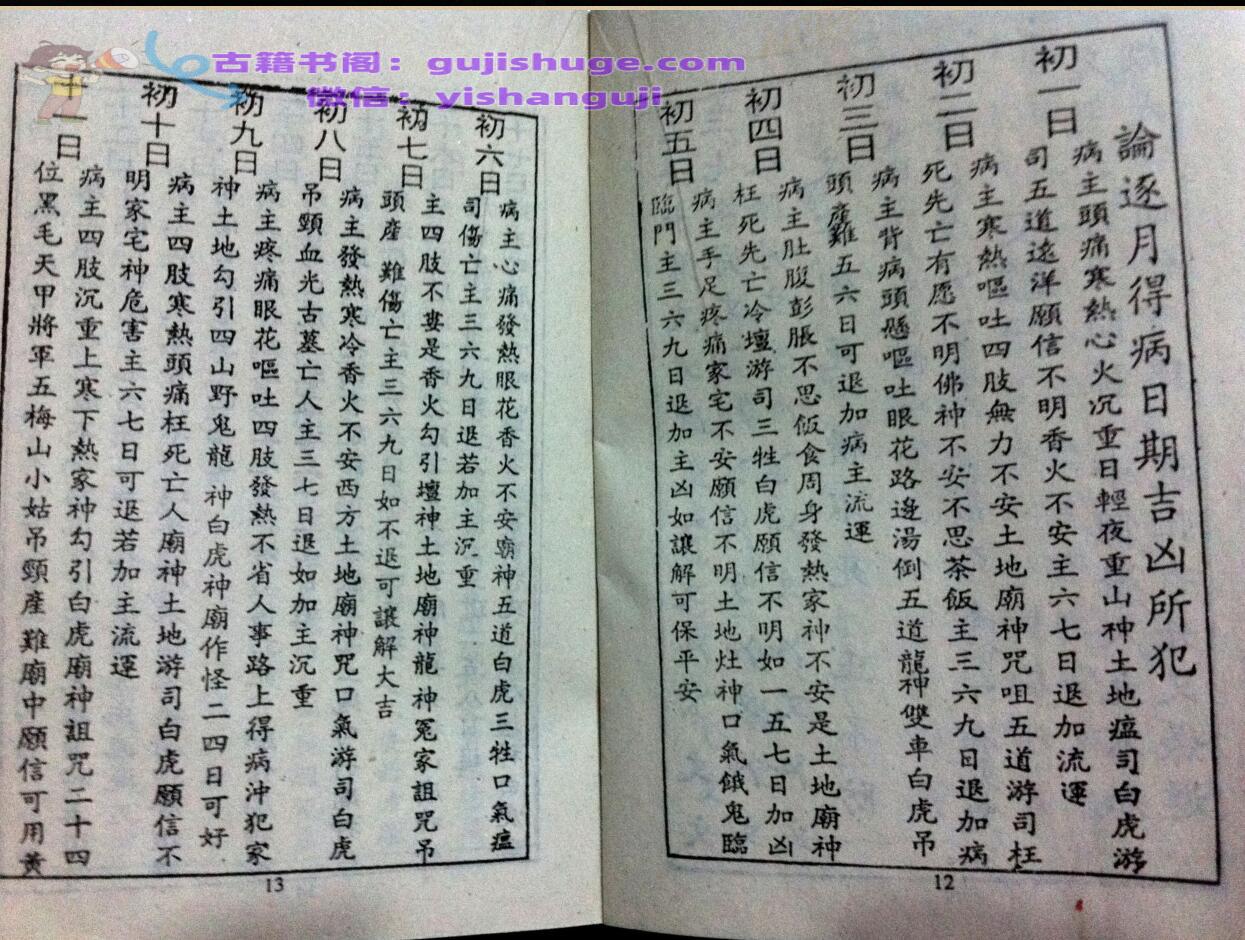 古籍书阁：gujishuge.com
微信：yishanguji
論逐月得病日期吉凶所犯
初一日
病主頭痛寒熱心火沉重日輕夜重山神土地瘟司白虎游
司五道遠洋願信不明香火不安主六七日退加流運
初二日
病主寒熱嘔吐四肢無力不安土地廟神咒咀五道游司枉
死先亡有愿不明佛神不安不思茶飯主三六九日退加病
初三日
病主背病頭懸嘔吐眼花路邊湯倒五道龍神雙車白虎吊
頭產難五六日可退加病主流運
初四日
病主肚腹彭脹不思飯食周身發熱家神不安是土地廟神
枉死先亡冷壇游司三牲白虎願信不明如一五七日加凶
初五日
病主手足疼痛家宅不安願信不明土地灶神口氣餓鬼臨
臨門主三六九日退加主凶如讓解可保平安
12
初六日
病主心痛發熱眼花香火不安廟神五道白虎三牲口氣瘟
司傷亡主三六九日退若加主沉重
初七日
主四肢不婁是香火勾引壇神土地廟神龍神冤家詛咒吊
頭產難傷亡主三六九日如不退可讓解大吉
初八日
病主發熱寒冷香火不安西方土地廟神咒口氣游司白虎
吊頸血光古墓亡人主三七日退如加主沉重
初九日
病主疼痛眼花嘔吐四肢發熱不省人事路上得病沖犯家
神土地勾引四山野鬼龍神白虎神廟作怪二四日可好
初十日
病主四肢寒熱頭痛枉死亡人廟神土地游司白虎願信不
明家宅神危害主六七日可退若加主流運
十一日
病主四肢沉重上寒下熱家神勾引白虎廟神詛咒二十四
位黑毛天甲將軍五梅山小姑吊頸產難廟中願信可用黃
13